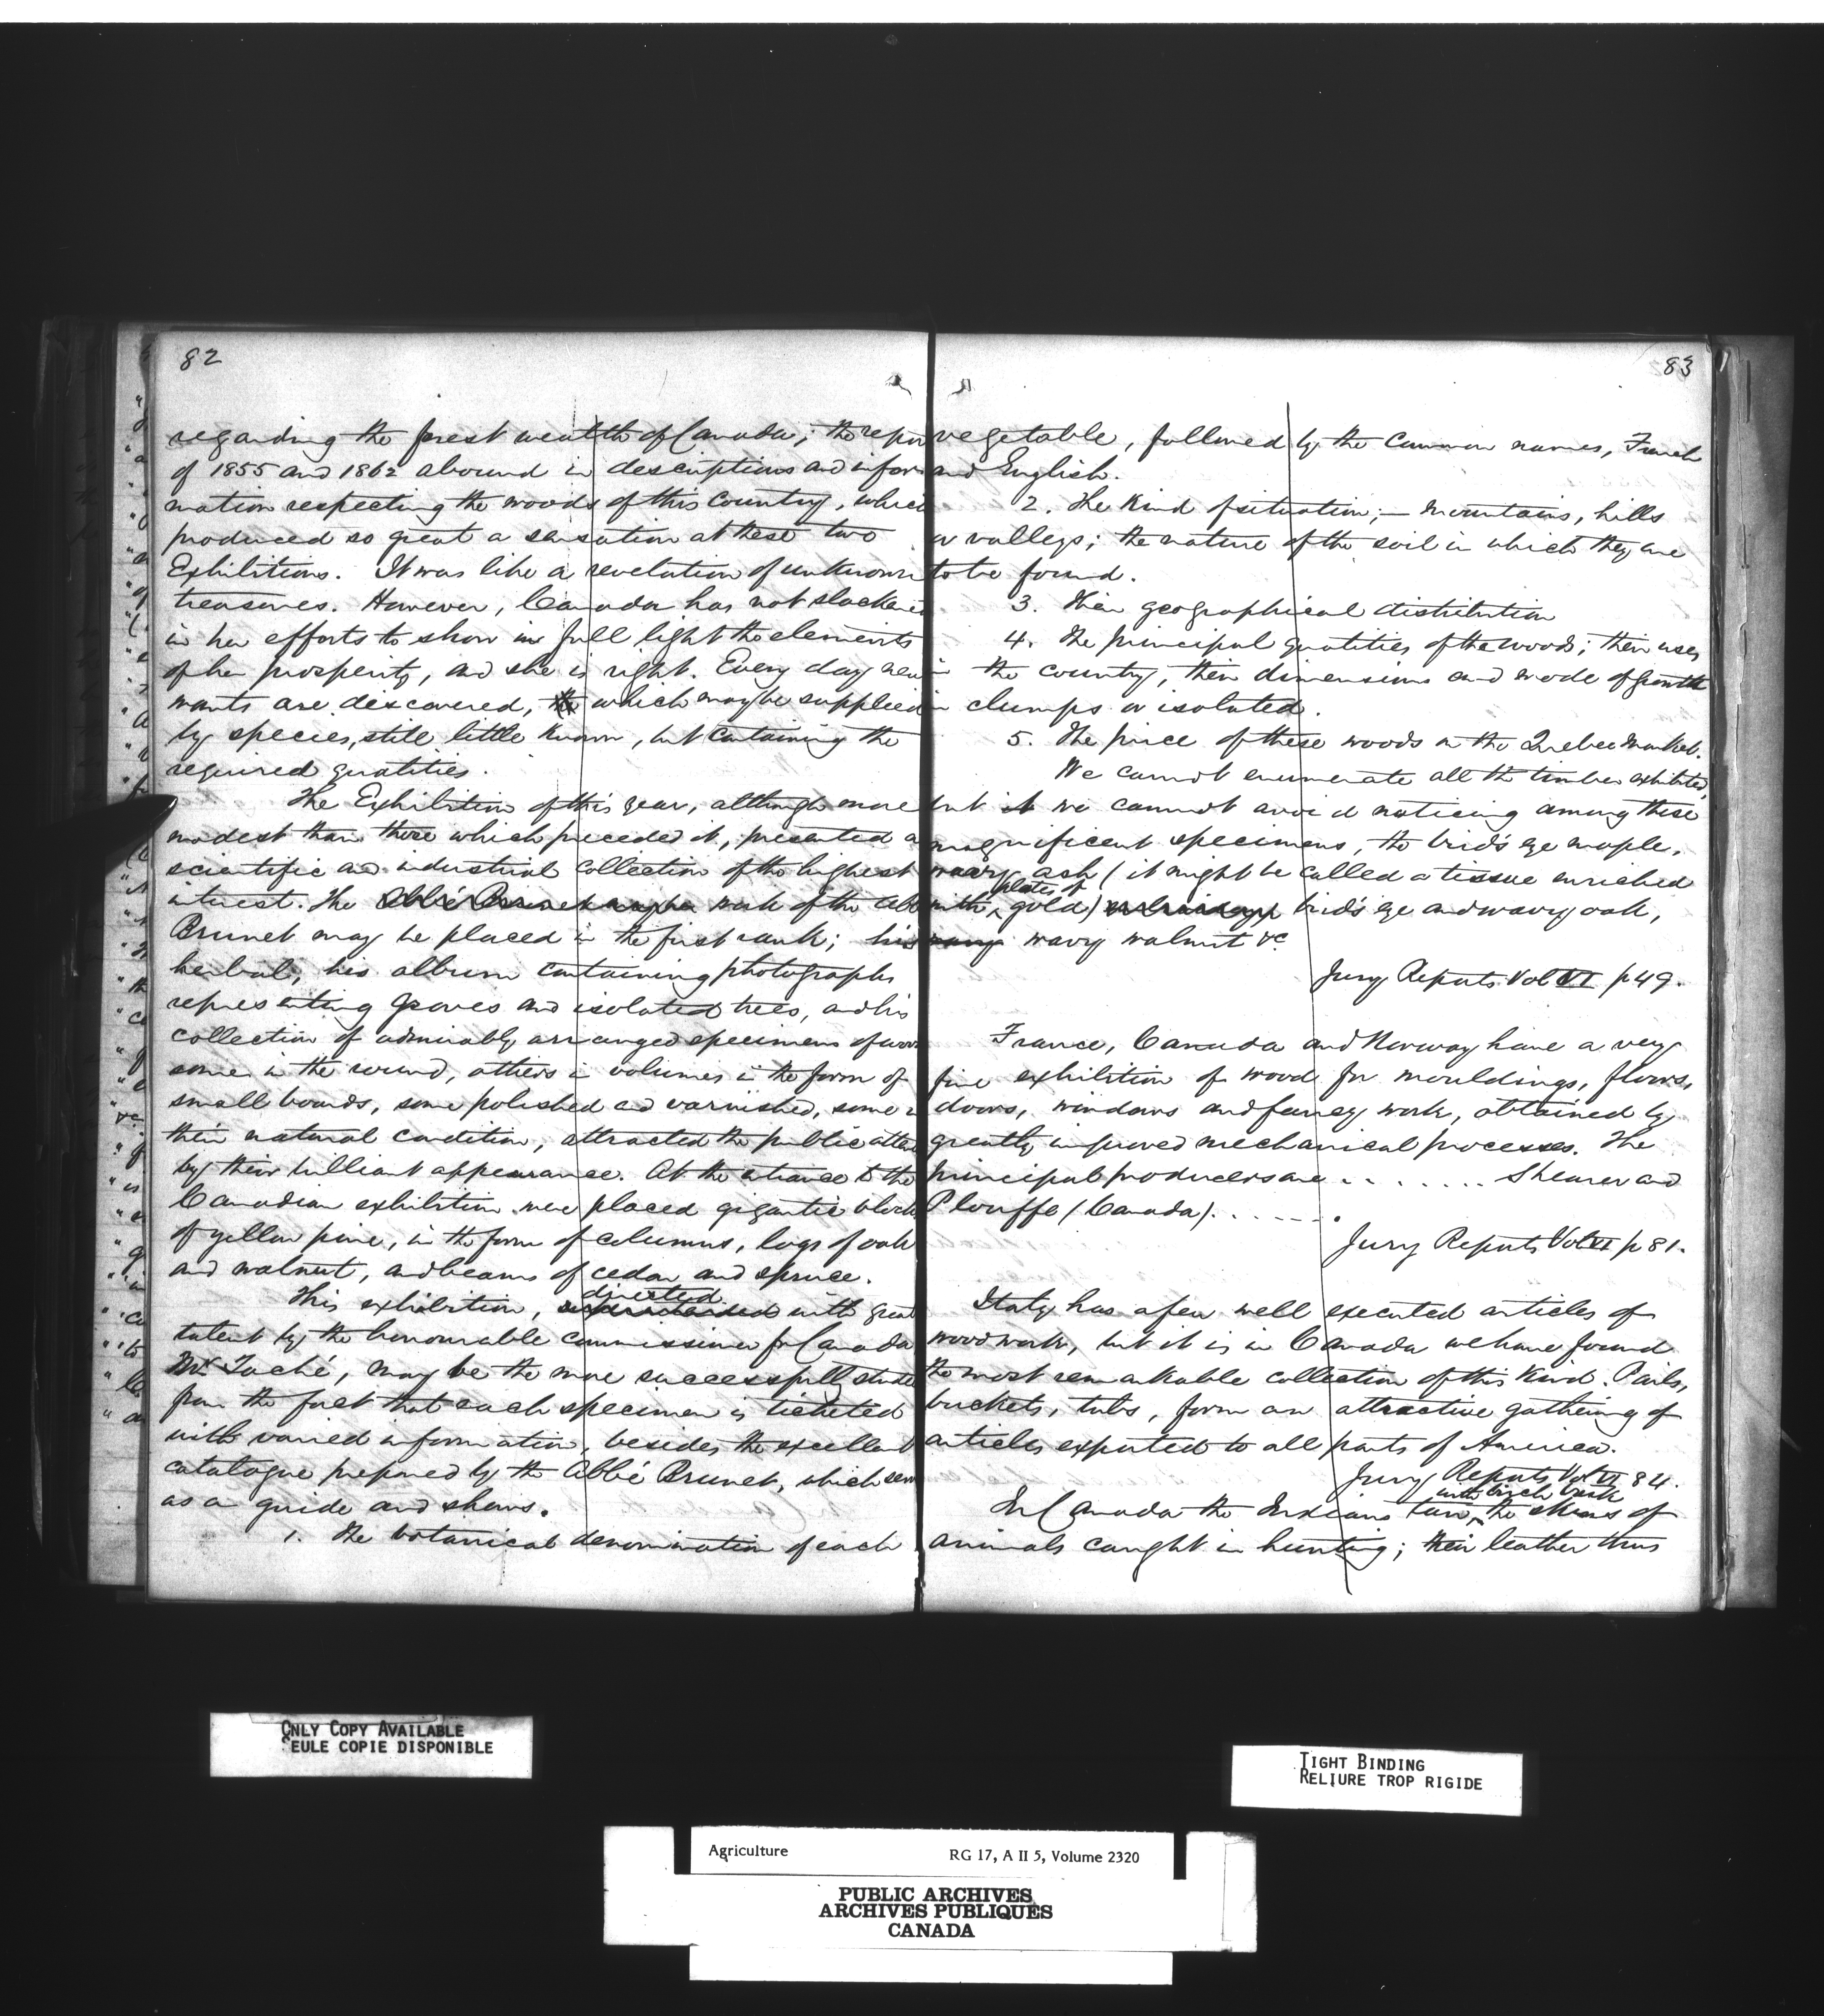 82
regarding the forest wealth of Canada; the repor
of 1855 and 1862 abound in descriptions and infor
mation respecting the woods of this country, which
produced so great a sensation at these two
Exhibitions. It was like a revelation of unknown
treasures. However, Canada has not slackened
in her efforts to show in full light the elements
of her prosperity, and she is right. Every day new
wants are discovered, which may be supplied
by species, still little known, but containing the
required qualities.
The Exhibition of this year, although more
modest than those which preceded it, presented a
scientific and industrial collection of the highest
interest. The work of the Abb
Brunet may be placed in the first rank; his
herbal, his album containing photographs
representing groves and isolated trees, and his
collection of admirably arranged specimens of woo
some in the round, others in volumes in the form of
small boards, some polished and varnished, some in
their natural condition, attracted the public atten
by their brilliant appearance. At the entrance to the
Canadian exhibition were placed gigantic blocks
of yellow pine, in the form of columns, logs of oak
and walnut, and beams of cedar and spruce.
This exhibition, directed with great
talent by the honourable commissioner for Canada
Mr. Taché, may be the more successfully studied
from the fact that each specimen is ticketed
with varied information, besides the excellent
catalogue prepared by the Abbé Brunet, which serv
as a guide and shews.
1. The botanical denomination of each
83
vegetable, followed by the common names, French
and English.
2. The kind of situation; — mountains, hills
or valleys; the nature of the soil in which they are
to be found.
3. Their geographical distribution
4. The principal qualities of the woods; their uses
in the country, their dimensions and mode of growth
in clumps or isolated.
5. The price of these woods on the Quebec market.
We cannot enumerate all the timber exhibited,
but we cannot avoid noticing among these
magnificent specimens, the bird's eye maple,
wavy ash (it might be called a tissue enriched
with plates of gold) bird's eye and wavy oak,
wavy walnut &c
Jury Reports Vol VI p 49.
France, Canada and Norway have a very
fine exhibition of wood for mouldings, floors,
doors, windows and fancy work, obtained by
greatly improved mechanical processes. The
principal producers are . . . . . . . Shearer and
Plouffe (Canada). . . . . .
Jury Reports Vol VI p 81.
Italy has a few well executed articles of
woodwork, but it is in Canada we have found
the most remarkable collection of this kind. Pails,
buckets, tubs, form an attractive gathering of
articles exported to all parts of America.
Jury Reports Vol VI 84.
In Canada the Indians tan with birch bark the skins of
animals caught in hunting; their leather thus
ONLY COPY AVAILABLE
SEULE COPIE DISPONIBLE
TIGHT BINDING
RELIURE TROP RIGIDE
Agriculture RG 17, A II 5, Volume 2320
PUBLIC ARCHIVES
ARCHIVES PUBLIQUES
CANADA